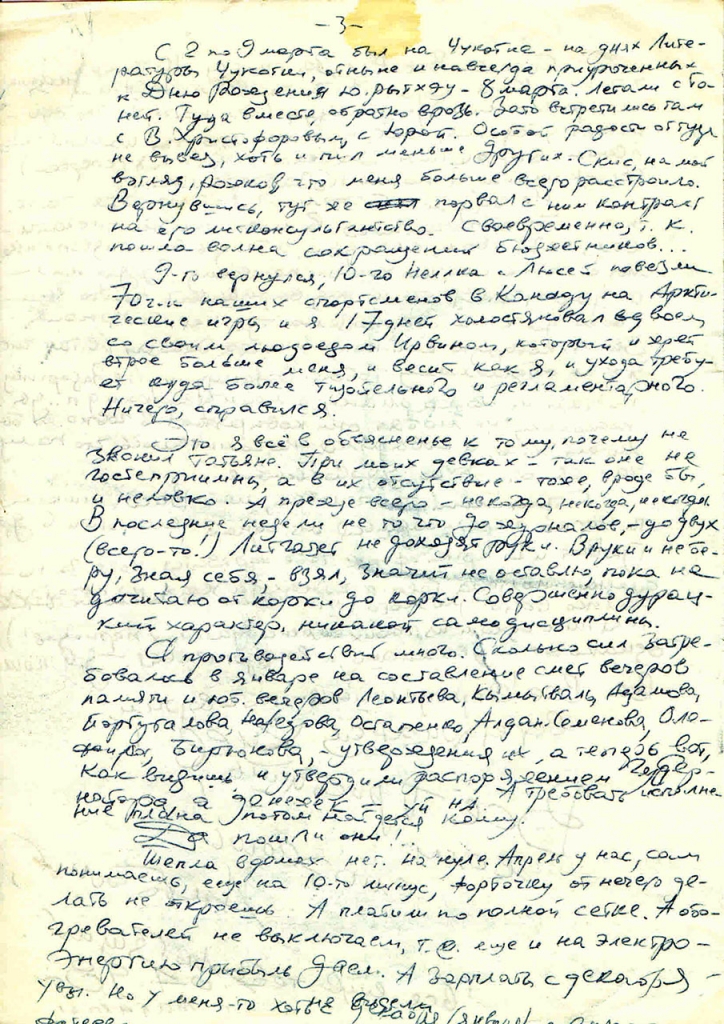 -3-
С 2 по 9 марта был на Чукотке - на днях Лите-
ратуры Чукотки, отныне и навсегда приуроченных
к Дню Рождения Ю. Рытхэу - 8 марта. Летали с То-
ней. Туда вместе, обратно врозь. Зато встретились там
с В. Христофоровым, с Юрой. Особой радости оттуда
не вывез, хоть и пил меньше других. Скис, на мой
взгляд, Рожков что меня больше всего расстроило.
Вернувшись, тут же порвал с ним контракт
на его литконсультантство. Своевременно, т. к.
пошла волна сокращений бюджетников...
9-го вернулся, 10-го Нелька с Люсей повезли
70 ч-к наших спортсменов в Канаду на Аркти-
ческие игры и я 17 дней холостяковал вдвоем
со своим людоедом Ирвином, который и жрёт
втрое больше меня, и весит как я, и ухода требу-
ет куда более тщательного и регламентарного.
Ничего, справился.
Это я всё в объясненье к тому, почему не
звонил Татьяне. При моих девках - так оне не
гостеприимны, а в их отсутствие - тоже, вроде бы,
и неловко. А прежде всего - некогда, некогда, некогда.
В последние недели не то что до журналов, - до двух
(всего-то!) Литгазет не доходят руки. В руки и не бе-
ру, зная себя, - взял, значит не оставлю, пока не
дочитаю от корки до корки. Совершенно дурац-
кий характер, никакой самодисциплины.
А противодействий много. Сколько сил затре-
бовалось в январе на составление смет вечеров
памяти и юб. вечеров Леонтьева, Кымытваль, Адамова,
Португалова, Остапенко, Алдан-Семенова,
Бирюкова, - утверждения их, а теперь вот,
как видишь и утвердили распоряжением Губер-
натора, а денежек - уй на. А требовать исполне-
ние плана потом найдется кому.
Да пошли они!..
Тепла в домах нет. На нуле. Апрель у нас, сам
понимаешь, еще на 10-то минус, форточку от нечего де-
лать не откроешь. А платили по полной сетке. А обо-
гревателей не выключаем, т.е. еще и на электро-
энергию прибыль даем. А зарплаты с декабря -
увы. Но у меня-то хоть